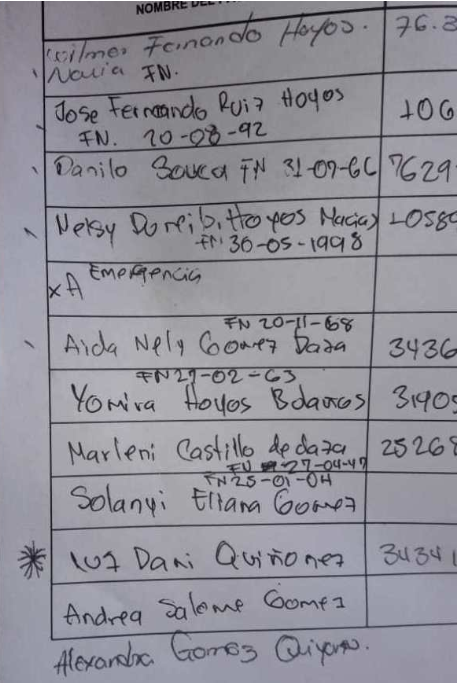 NOMBRE DEL
Wilmer Fernando Hoyos. 76.3
Navia FN.
Jose Fernando Ruiz Hoyos 106
FN. 20-08-92
Danilo Sauca FN 31-07-66 7629
Nelsy Doreibi Hoyos Macias 10580
FN 30-05-1998
x A Emergencia
FN 20-11-68
Aida Nely Gomez Daza 3436
FN 27-02-63
Yomira Hoyos Bolaños 31905
Marleni Castillo de daza 25268
FN 27-04-47
FN 25-01-04
Solanyi Eliana Gomez
* luz Dani Quiñonez 34341
Andrea Salome Gomez
Alexandra Gomez